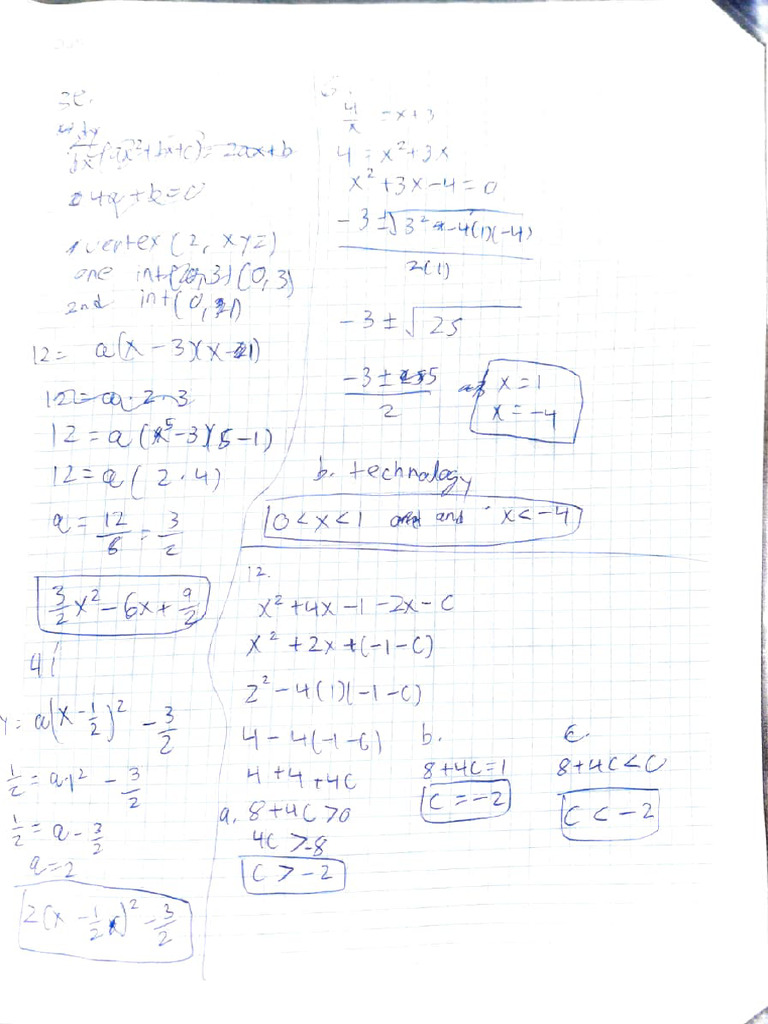 3e.
4a + b = 0
vertex (2, xyz)
one int (0, 3)
2nd int (0, 1)
12 = a(x - 3)(x - 1)
12 = a · 2 · 3
12 = a(5 - 3)(5 - 1)
12 = a(2 · 4)
a = 12/8 = 3/2
3/2 x² - 6x + 9/2
4i
y = a(x - 1/2)² - 3/2
1/2 = a1² - 3/2
1/2 = a - 3/2
a = 2
2(x - 1/2)² - 3/2
6.
4/x = x + 3
4 = x² + 3x
x² + 3x - 4 = 0
-3 ± √(3² - 4(1)(-4))
2(1)
-3 ± √25
-3 ± 5
2
x = 1
x = -4
b. technology
0 < x < 1 and x < -4
12.
x² + 4x - 1 - 2x - C
x² + 2x + (-1 - C)
2² - 4(1)(-1 - C)
4 - 4(-1 - C)
4 + 4 + 4C
a. 8 + 4C > 0
4C > -8
C > -2
b.
8 + 4C = 1
C = -2
c.
8 + 4C < 0
C < -2